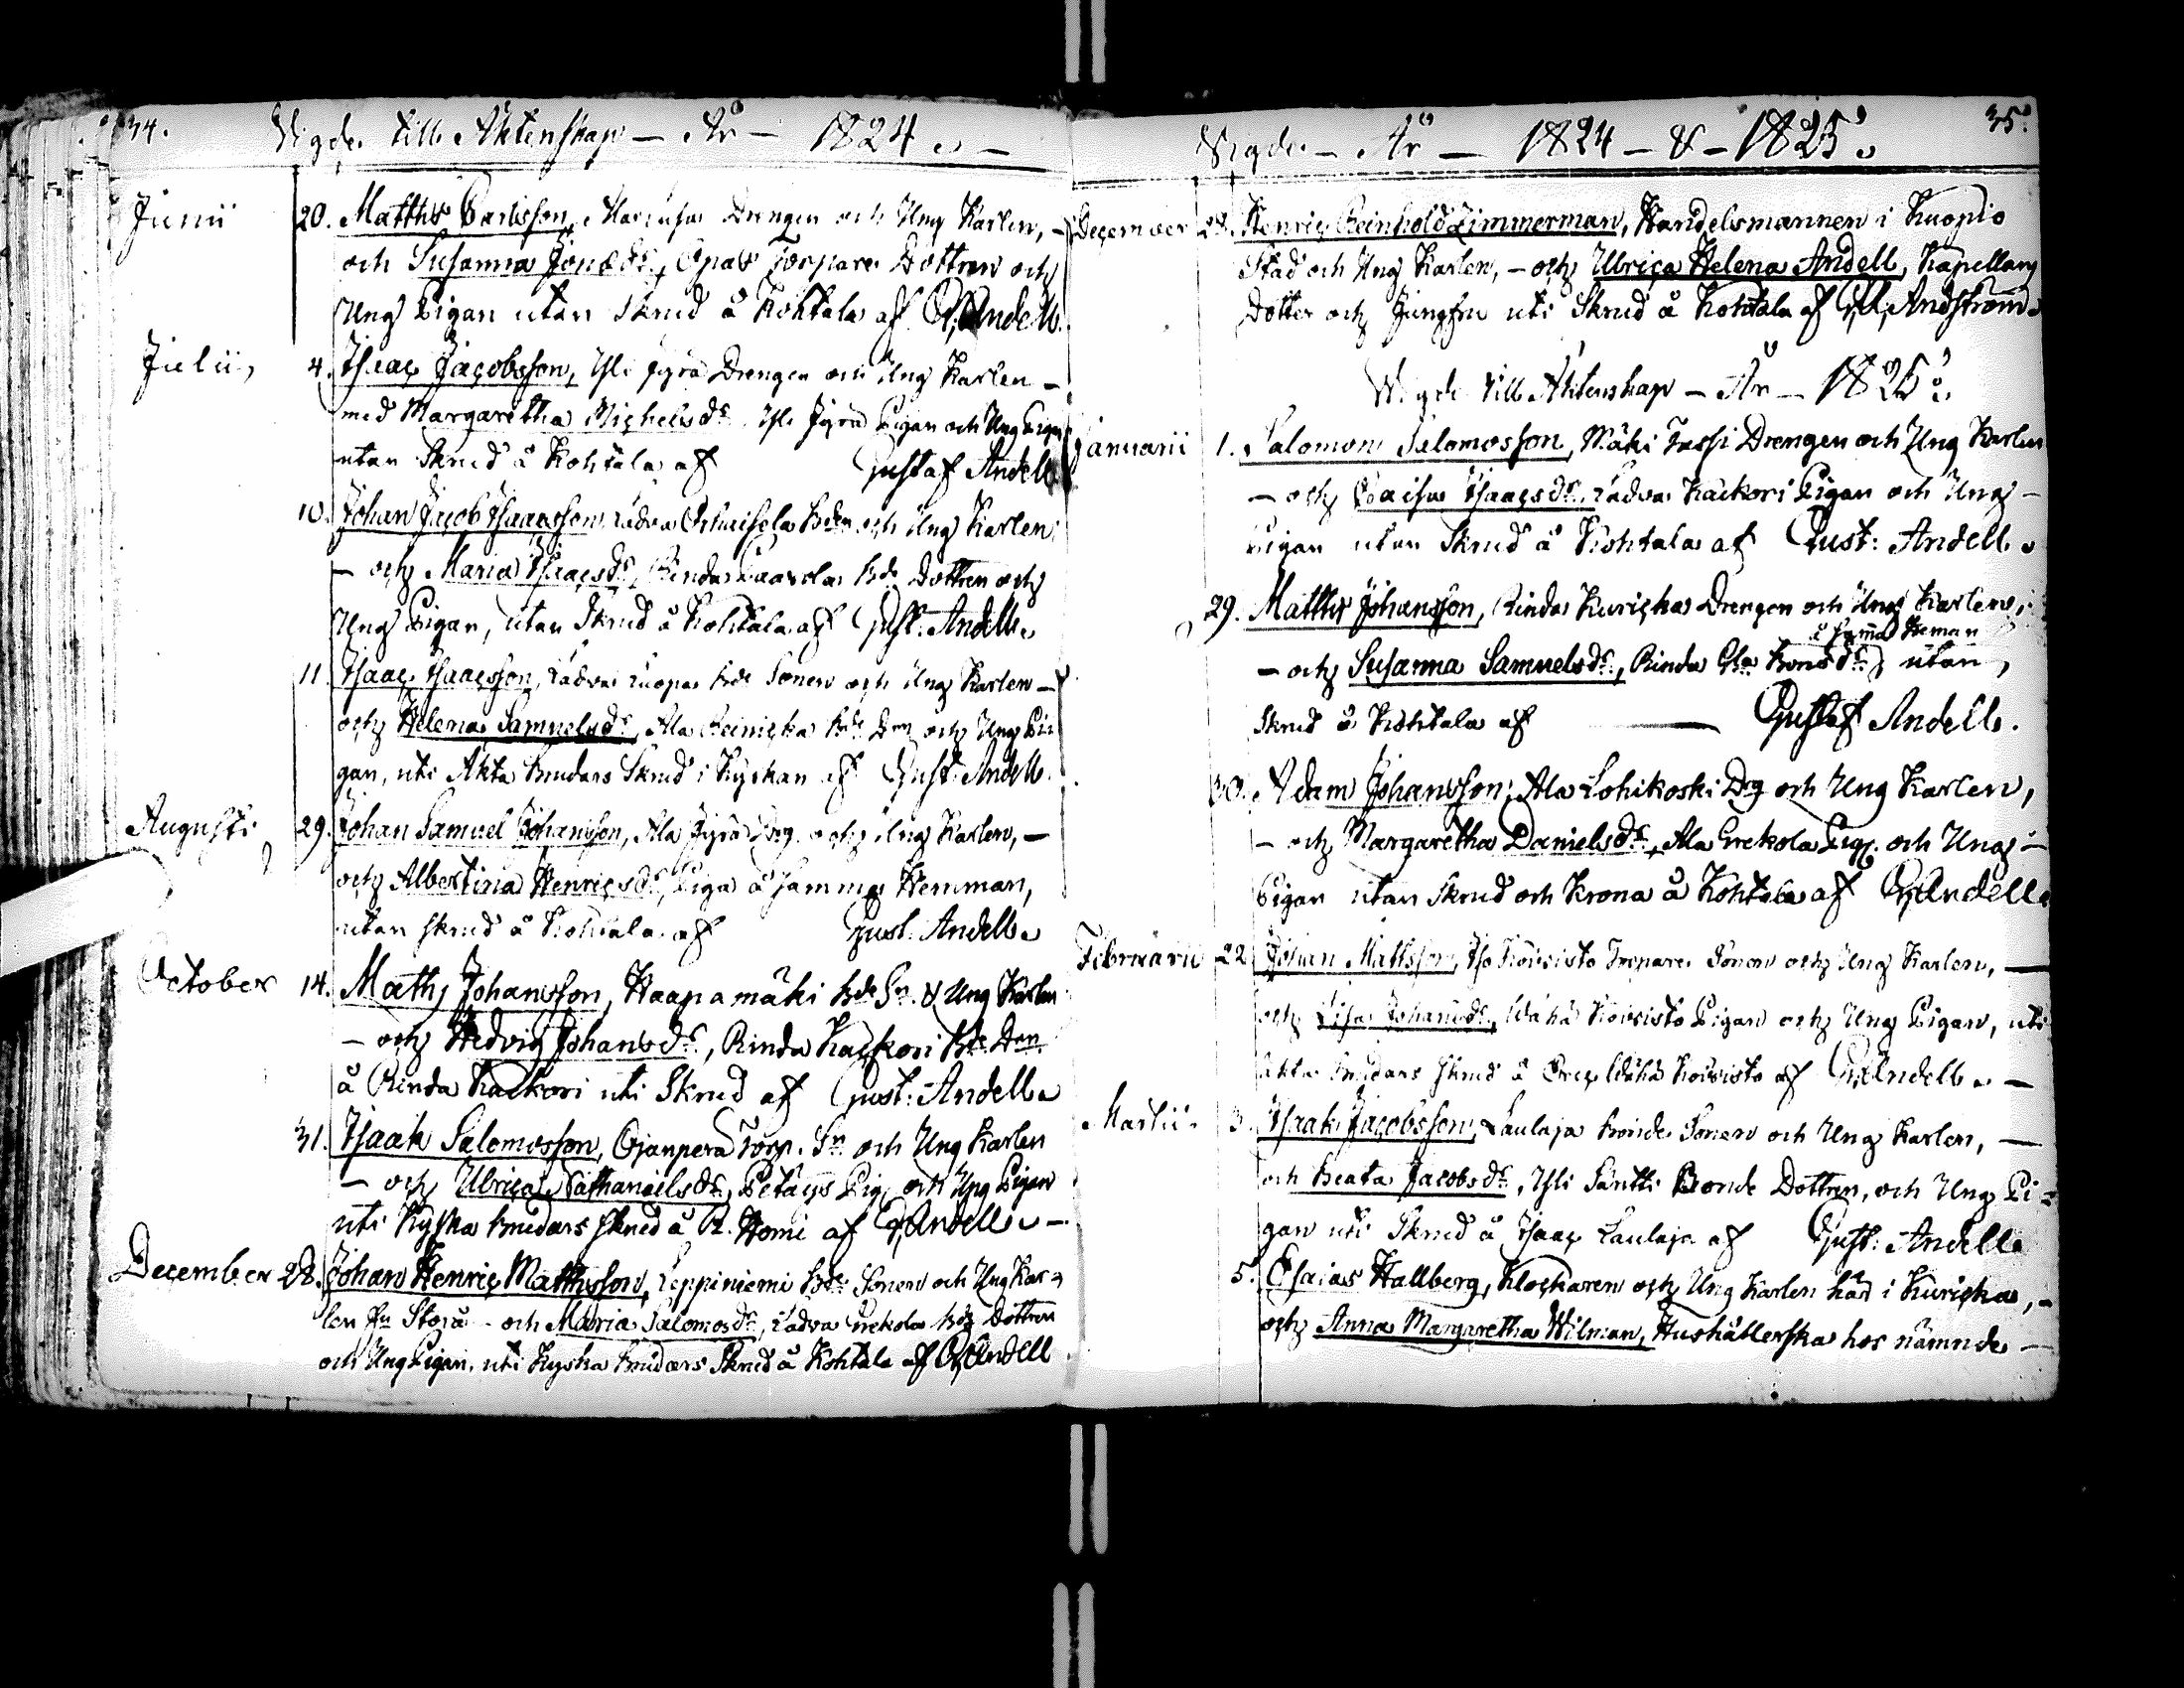 34.
Vigde till Äktenskap – År – 1824. –
Junii 20. Matths Carlsson, Drengen och Ung Karlen, –
och Susanna Jonæ dr, Torpare Dottren och
Ung Pigan utan Skrud å Kohtala af G. Andell.
Julii, 4. Isaac Jacobsson, Yli Jyrä Drengen och Ung Karlen –
med Margaretha Michels dr Yli Jyrä Pigan och Ung Pigan
utan Skrud å Kohtala af Gustaf Andell
10. Johan Jacob Isaacsson, Ladva Bden och Ung Karlen
– och Maria Isaacs dr, Rinda Bde Dottren och
Ung Pigan, utan Skrud å Kohtala af Gust: Andell.
11 Isaac Isaacsson, Ladva Luopa Bde Sonen och Ung Karlen –
och Helena Samuels dr, Ala Reinicka Bde Dren och Ung Pi=
gan, uti Äkta Brudars Skrud i Kyrkan af Gust: Andell.
Augusti 29. Johan Samuel Johansson, Ala Jyrä Dreg och Ung Karlen, –
och Albertina Henrics dr, Piga å samma Hemman,
utan skrud å Kohtala af Gust: Andell.
October 14. Maths Johansson, Haapamäki Bde Sn. & Ung Karlen
– och Hedvig Johans dr, Rinda Kackori Bde Dren
å Rinda Kackori uti Skrud af Gust: Andell.
31. Isaak Salomosson, Ojanperä Torp. Sn och Ung Karlen
– och Ulrica Nathanaels dr, Petays Pig. och Ung Pigan
uti Kyska Brudars skrud å R. Homi af G. Andell. –
December 28. Johan Henric Mathysson, Leppiniemi Bde Sonen och Ung Kar=
len fn Storå – och Maria Salomos dr, Ladva Grekola Bde Dottren
och Ung Pigan, uti Kyska Brudars Skrud å Kohtala af G. Andell
35.
Vigde – År – 1824 – & – 1825.
December 28. Henric Reinhold Zimmerman, Handelsmannen i Kuopio
Stad och Ung Karlen, – och Ulrica Helena Andell, Kapellans
Dotter och Jungfru uti Skrud å Kohtala af Andström.
Vigde till Äktenskap – År – 1825.
Januarii 1. Salomon Salomosson, Mäki Jussi Drengen och Ung Karlen
– och Caisa Isaacs dr, Ladva Kackori Pigan och Ung –
Pigan utan Skrud å Kohtala af Gust: Andell.
29. Matths Johansson, Rinda Kuricka Drengen och Ung Karlen,
å samma Heman
– och Susanna Samuels dr, Rinda utan
Skrud å Kohtala af – Gustaf Andell.
30. Adam Johansson, Ala Lohikoski Drg och Ung Karlen,
– och Margaretha Daniels dr, Ala Grekola Pig. och Ung –
Pigan utan Skrud och Krona å Kohtala af G. Andell.
Februarii 22 Johan Mattsson, Iso Koivisto Torpare Sonen och Ung Karlen, –
och Lisa Johans dr, Wähä Koivisto Pigan och Ung Pigan, uti
äkta Brudars skrud å Wähä Koivisto af G. Andell. –
Martii 3. Isaak Jacobsson, Laulaja Bonde Sonen och Ung Karlen, –
och Beata Jacobs dr, Yli Säntti Bonde Dottren, och Ung Pi=
gan uti Skrud å Isaac Laulaja af Gust: Andell.
5. Esaias Hallberg, Klockaren och Ung Karlen här i Kuricka, –
och Anna Margaretha Wilman, Hushållerska hos nämnde –